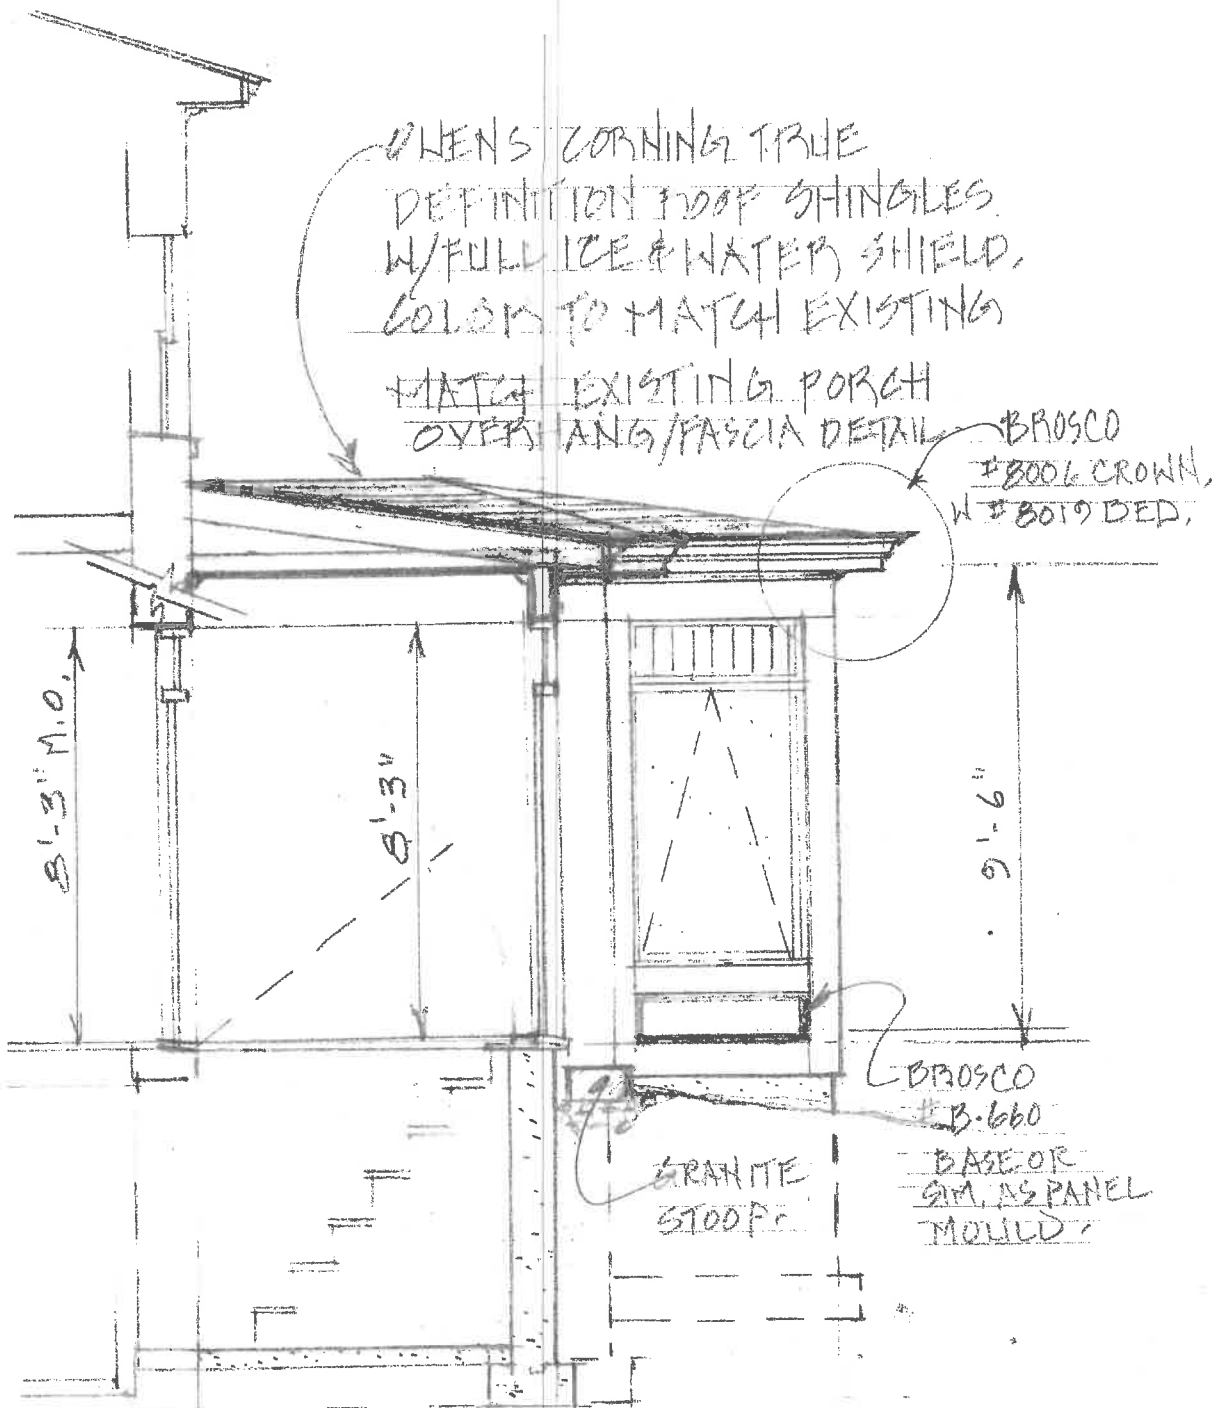 OWENS CORNING TRUE
DEFINITION ROOF SHINGLES.
W/FULL ICE & WATER SHIELD,
COLOR TO MATCH EXISTING
MATCH EXISTING PORCH
OVER ANG/FASCIA DETAIL
BROSCO
#8006 CROWN,
W #8019 BED.
8'-3" M.O.
8'-3"
9'-6"
BROSCO
#B-660
BASE OR
SIM. AS PANEL
MOULD.
GRANITE
STOOP.